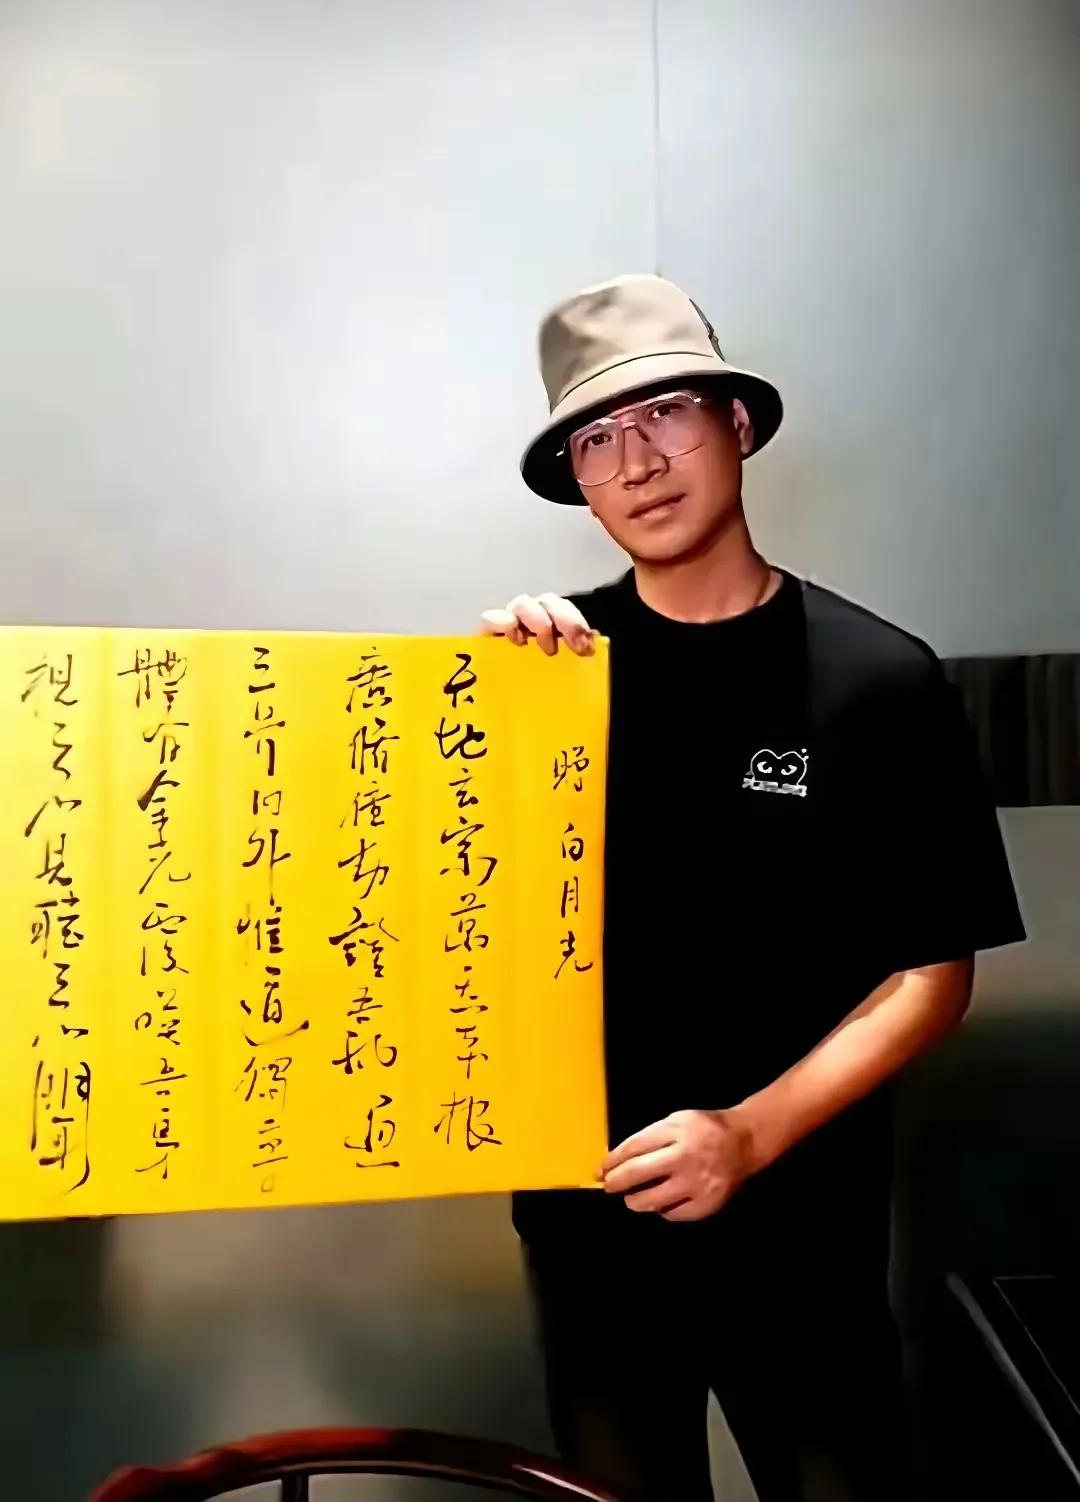 贈 白月光
天地玄宗萬炁本根
廣脩億劫證吾神通
三界内外惟道獨尊
體有金光覆暎吾身
視之不見聽之不聞